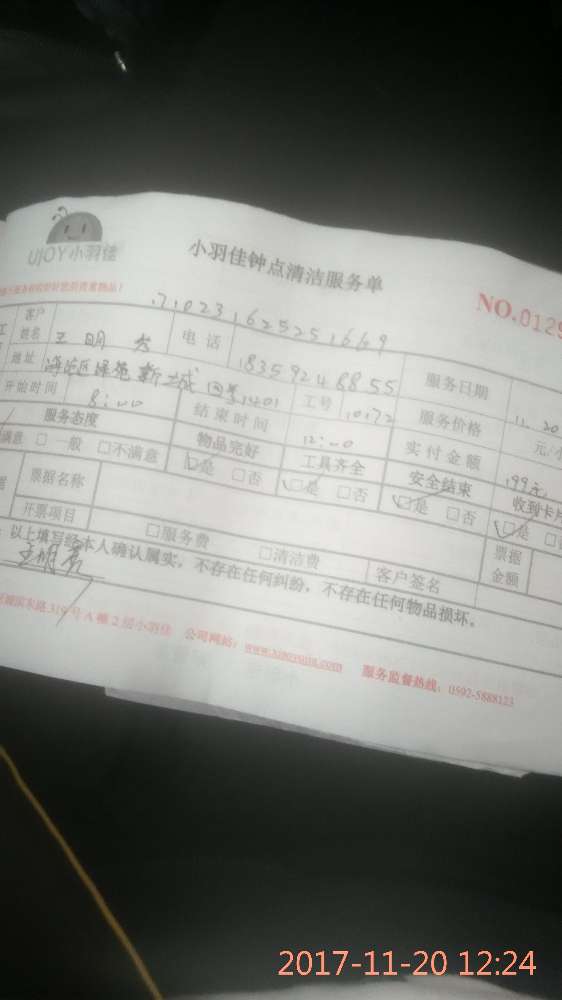 UJOY小羽佳
小羽佳钟点清洁服务单
NO.0129
17102316252251669
客户姓名 王明 电话 18359248855 服务日期 11.20
地址 新城 1401 工号 1072 服务价格 元/小
开始时间 8:00 结束时间 12:00 实付金额 199元
服务态度 物品完好 工具齐全 安全结束 收到卡
满意 □一般 □不满意 □是 □否 □是 □否 □是 □否 □是
票据名称
开票项目 □服务费 □清洁费 客户签名 票据金额
以上填写经本人确认属实,不存在任何纠纷,不存在任何物品损坏。
东路319号A幢2层小羽佳 公司网站: 服务监督热线:0592-5888123
2017-11-20 12:24